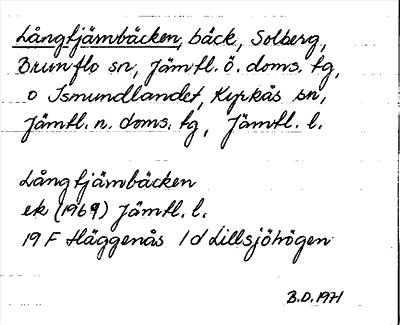 Långtjämbäcken, bäck, Solberg,
Brunflo sn, Jämtl. ö. doms. tg,
o Ismundlandet, Kyrkås sn,
Jämtl. n. doms. tg, Jämtl. l.
Långtjämbäcken
ek (1969) Jämtl. l.
19 F Häggenås 1 d Lillsjöhögen
B.D. 1971